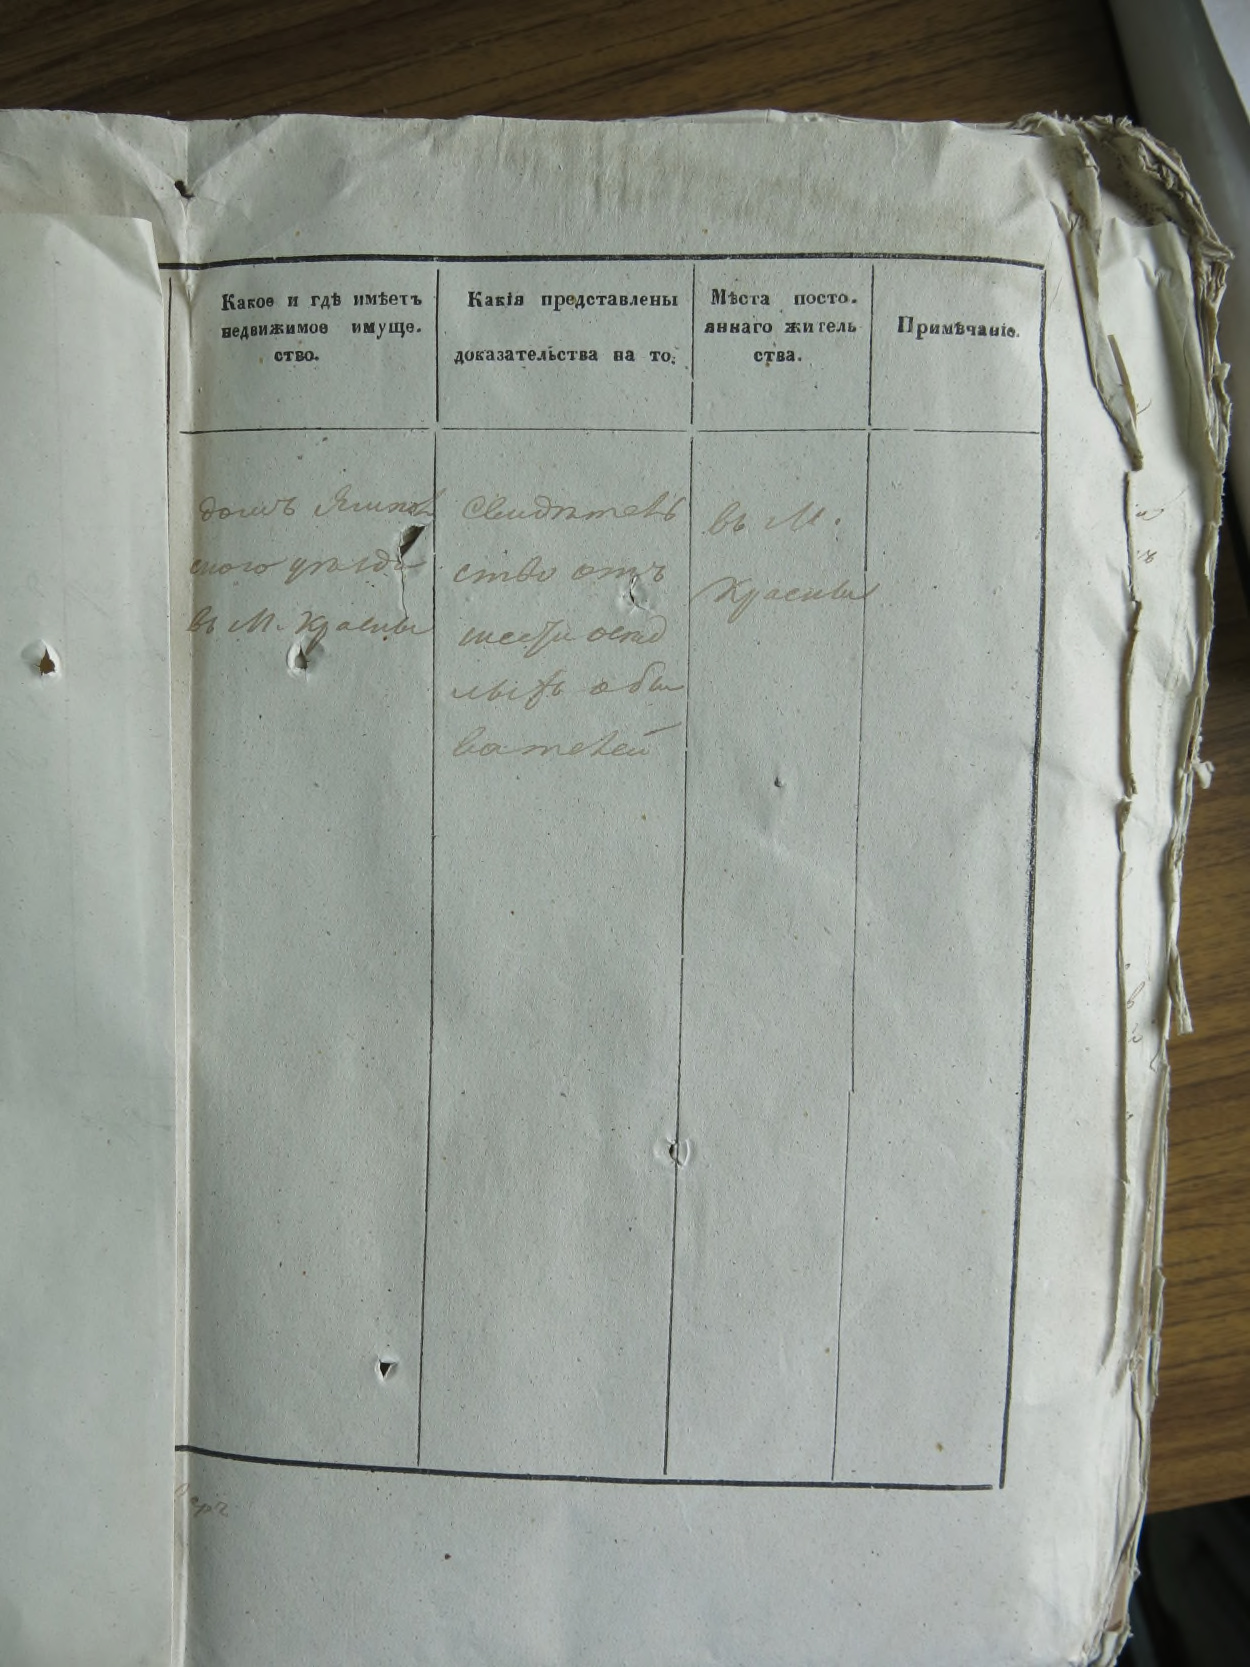 Какое и гдѣ имѣетъ
недвижимое имуще.
ство.
Какія представлены
доказательства на то.
Мѣста посто.
яннаго жигель
ства.
Примѣчаніе.
домъ
ского уѣзда
въ М. Красилы
Свидѣтель
ство отъ
шести осѣд
лыхъ обы
вателей
въ М.
Красилы